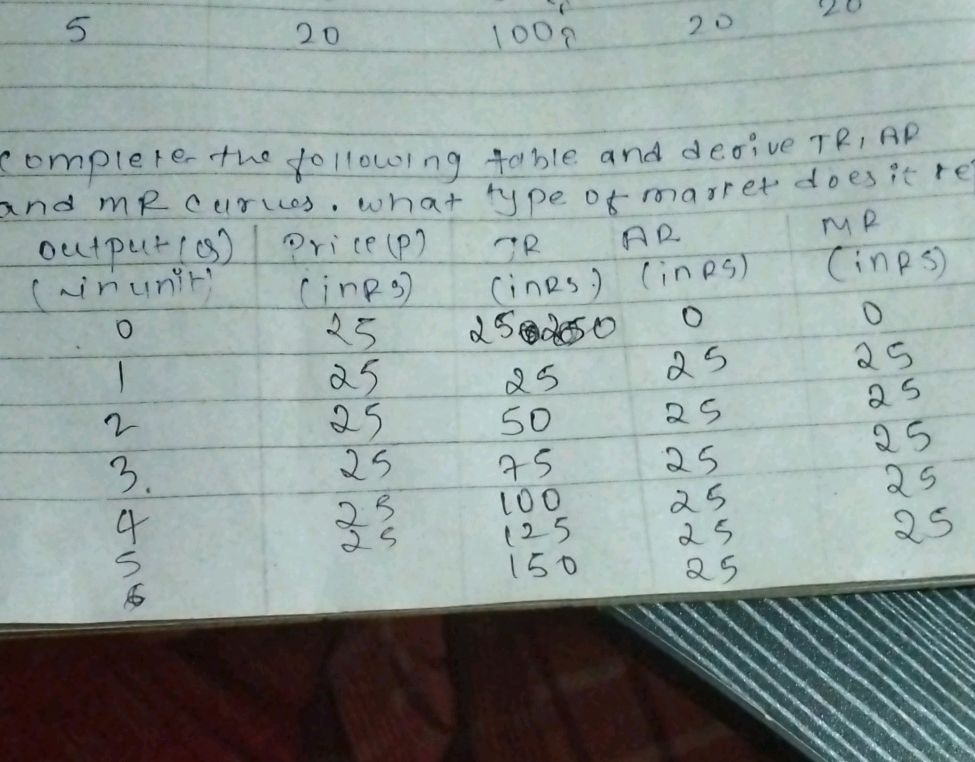 5 20 100 20 20
complete the following table and derive TR, AR
and MR curves. what type of market does it re
output (Q) Price (P) TR AR MR
(in unit) (in RS) (in RS.) (in RS) (in RS)
0 25 0 0
1 25 25 25 25
2 25 50 25 25
3. 25 75 25 25
4 25 100 25 25
5 25 125 25 25
6 150 25